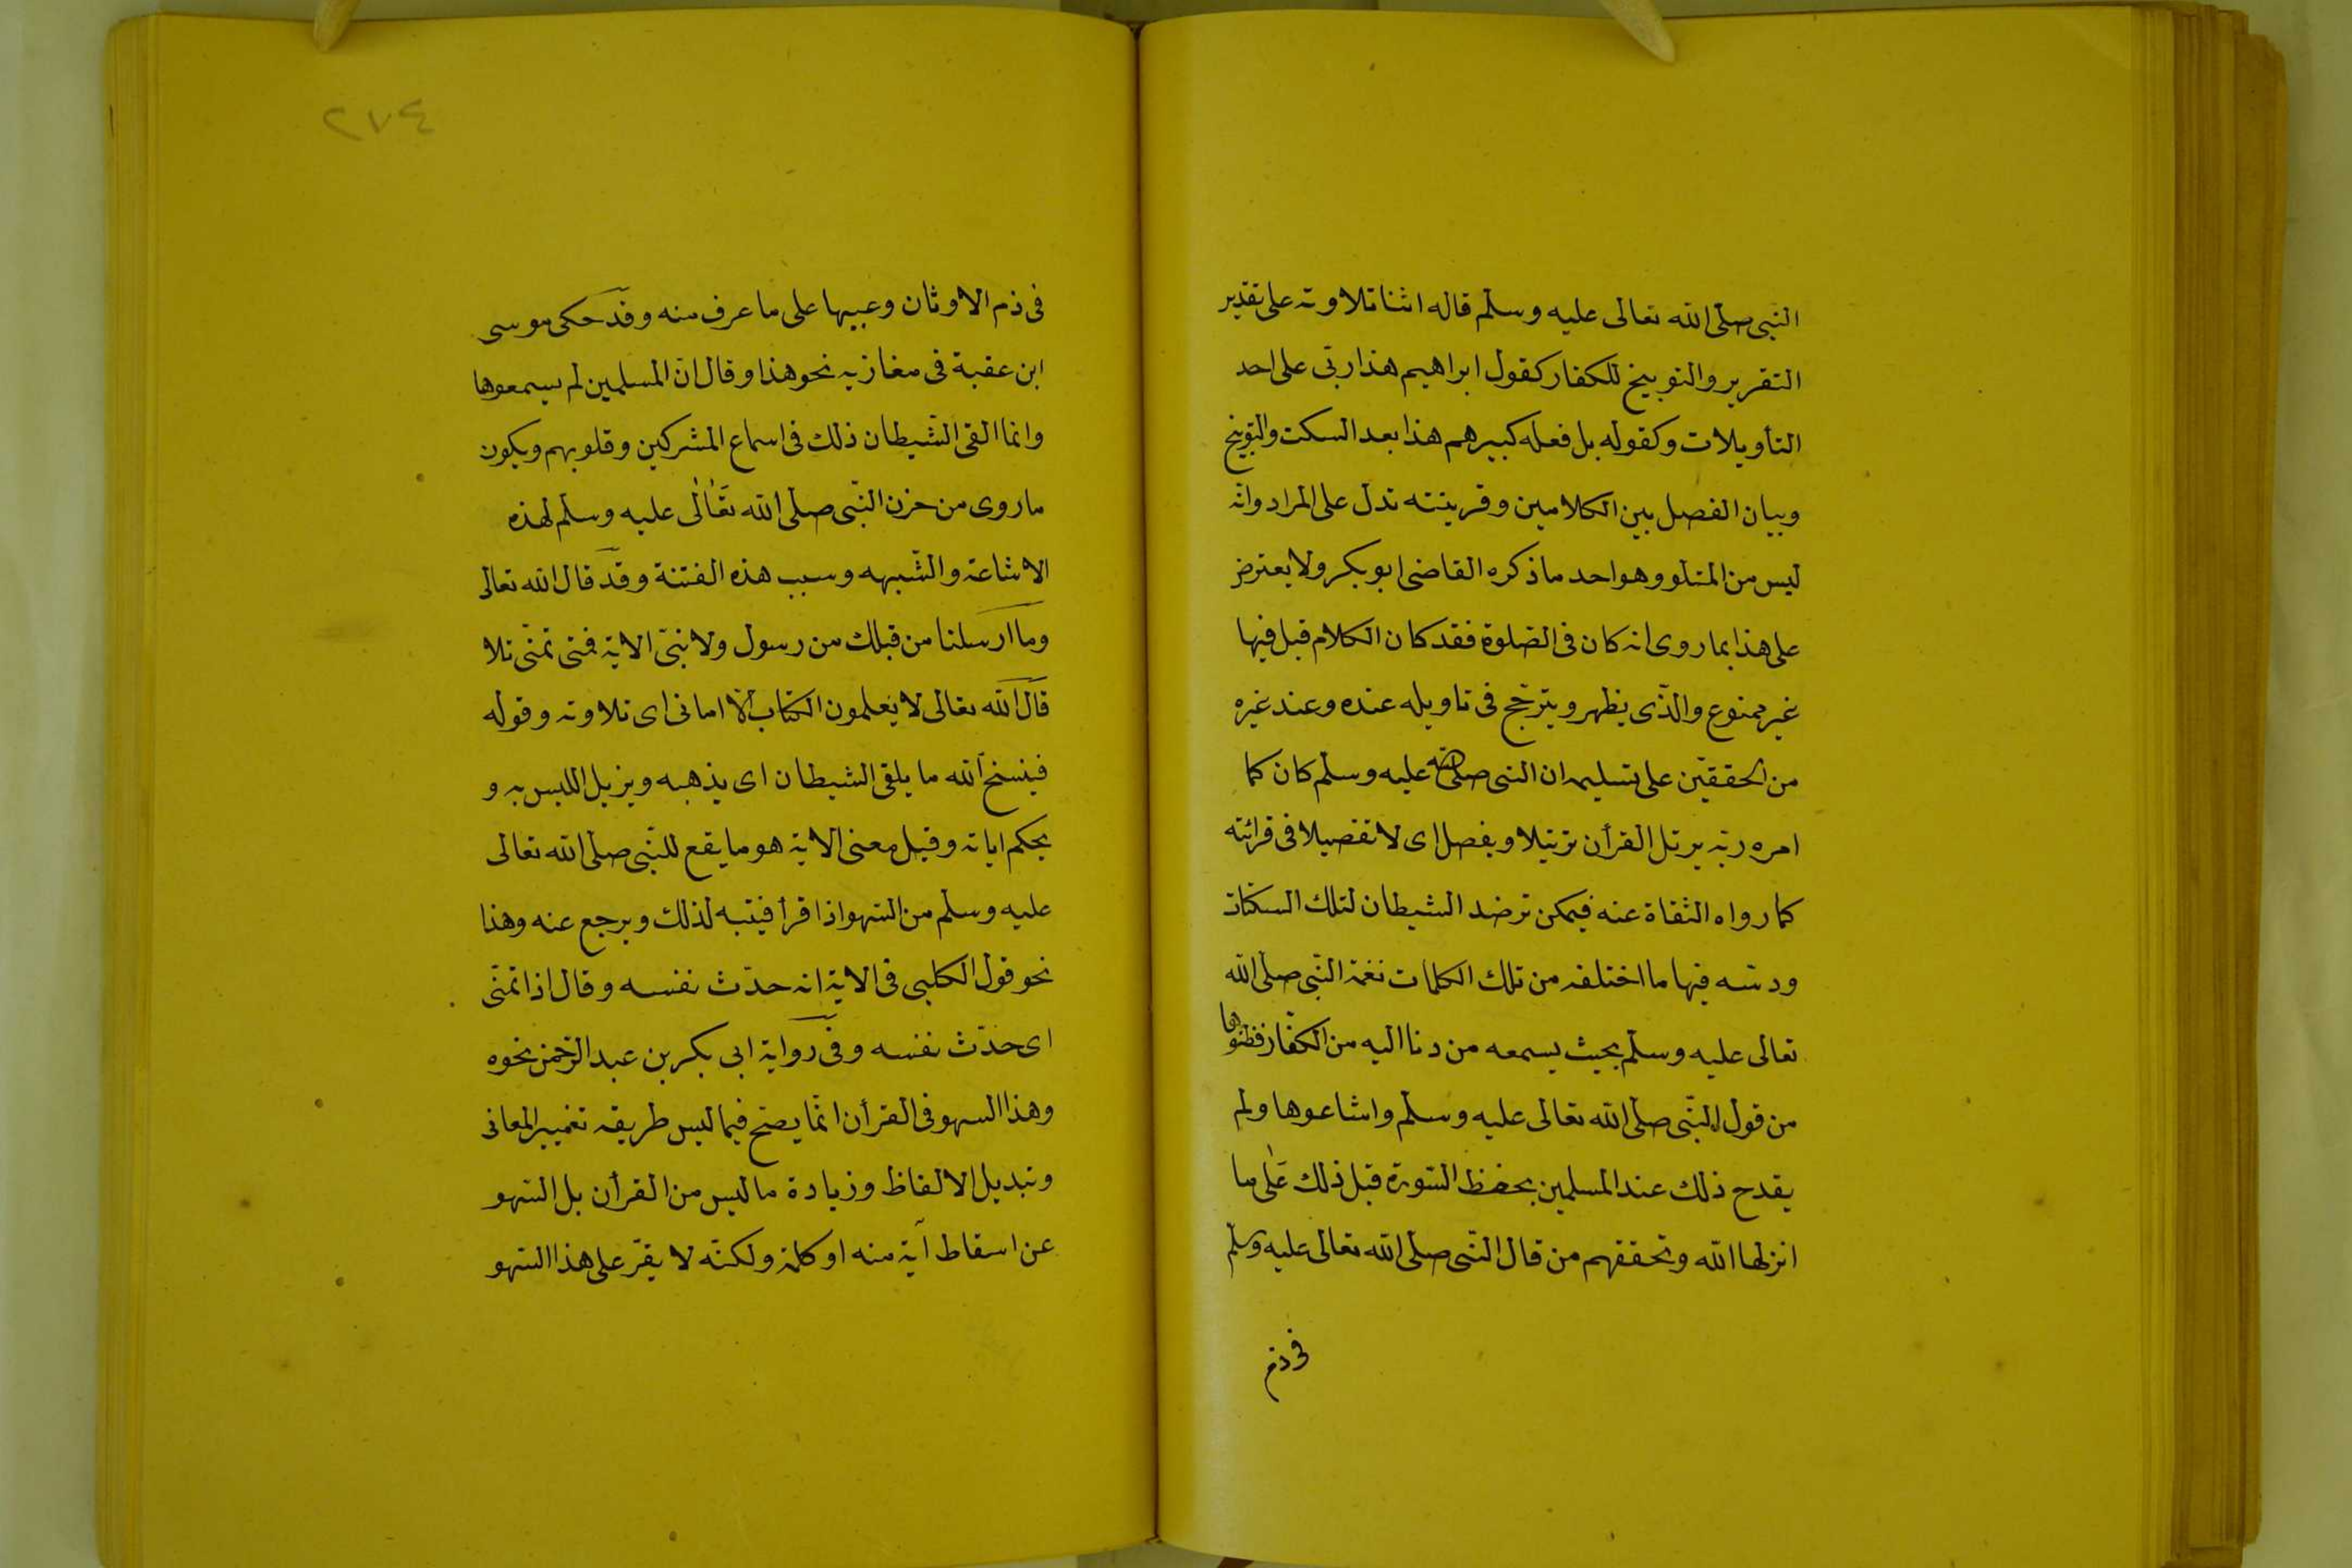 النبى صلى الله تعالى عليه وسلم قاله اثنا تلاوته على تقدير
التقرير والتوبيخ للكفار كقول ابراهيم هذا ربى على احد
التأويلات وكقوله بل فعله كبيرهم هذا بعد السكت والتوبيخ
وبيان الفصل بين الكلامين وقرينته تدل على المراد وانه
ليس من المتلو وهو احد ما ذكره القاضى ابو بكر ولا يعترض
على هذا بما روى انه كان فى الصلوة فقد كان الكلام قبل فيها
غير ممنوع والذى يظهر ويترجح فى تاويله عنده وعند غيره
من المحققين على تسليمه ان النبى صلى الله عليه وسلم كان كما
امره ربه يرتل القرأن ترتيلا ويفصل اى لا تفصيلا فى قرائته
كما رواه الثقاة عنه فيمكن ترصد الشيطان لتلك السكتات
ودسه فيها ما اختلقه من تلك الكلمات نغمة النبى صلى الله
تعالى عليه وسلم بحيث يسمعه من دنا اليه من الكفار فظنوها
من قول النبى صلى الله تعالى عليه وسلم واشاعوها ولم
يقدح ذلك عند المسلمين بحفظ السورة قبل ذلك على ما
انزلها الله وتحققهم من قال النبى صلى الله تعالى عليه وسلم
فى ذم
٢٧٤
فى ذم الاوثان وعيبها على ما عرف منه وقد حكى موسى
ابن عقبة فى مغازيه نحو هذا وقال ان المسلمين لم يسمعوها
وانما القى الشيطان ذلك فى اسماع المشركين وقلوبهم ويكون
ما روى من حزن النبى صلى الله تعالى عليه وسلم لهذه
الاشاعة والشبهه وسبب هذه الفتنة وقد قال الله تعالى
وما ارسلنا من قبلك من رسول ولا نبى الاية فمتى تمنى تلا
قال الله تعالى لا يعلمون الكتاب الا امانى اى تلاوته وقوله
فينسخ الله ما يلقى الشيطان اى يذهبه ويزيل اللبس به و
يحكم اياته وقيل معنى الاية هو ما يقع للنبى صلى الله تعالى
عليه وسلم من السهو اذا قرأ فيتبه لذلك ويرجع عنه وهذا
نحو قول الكلبى فى الاية انه حدّث نفسه وقال اذا تمنّى
اى حدّث نفسه وفى رواية ابى بكر بن عبد الرحمن نحوه
وهذا السهو فى القرأن انما يصح فيما ليس طريقه تغيير المعانى
وتبديل الالفاظ وزيادة ما ليس من القرأن بل السهو
عن اسقاط آية منه او كلمة ولكنه لا يقرّ على هذا السهو